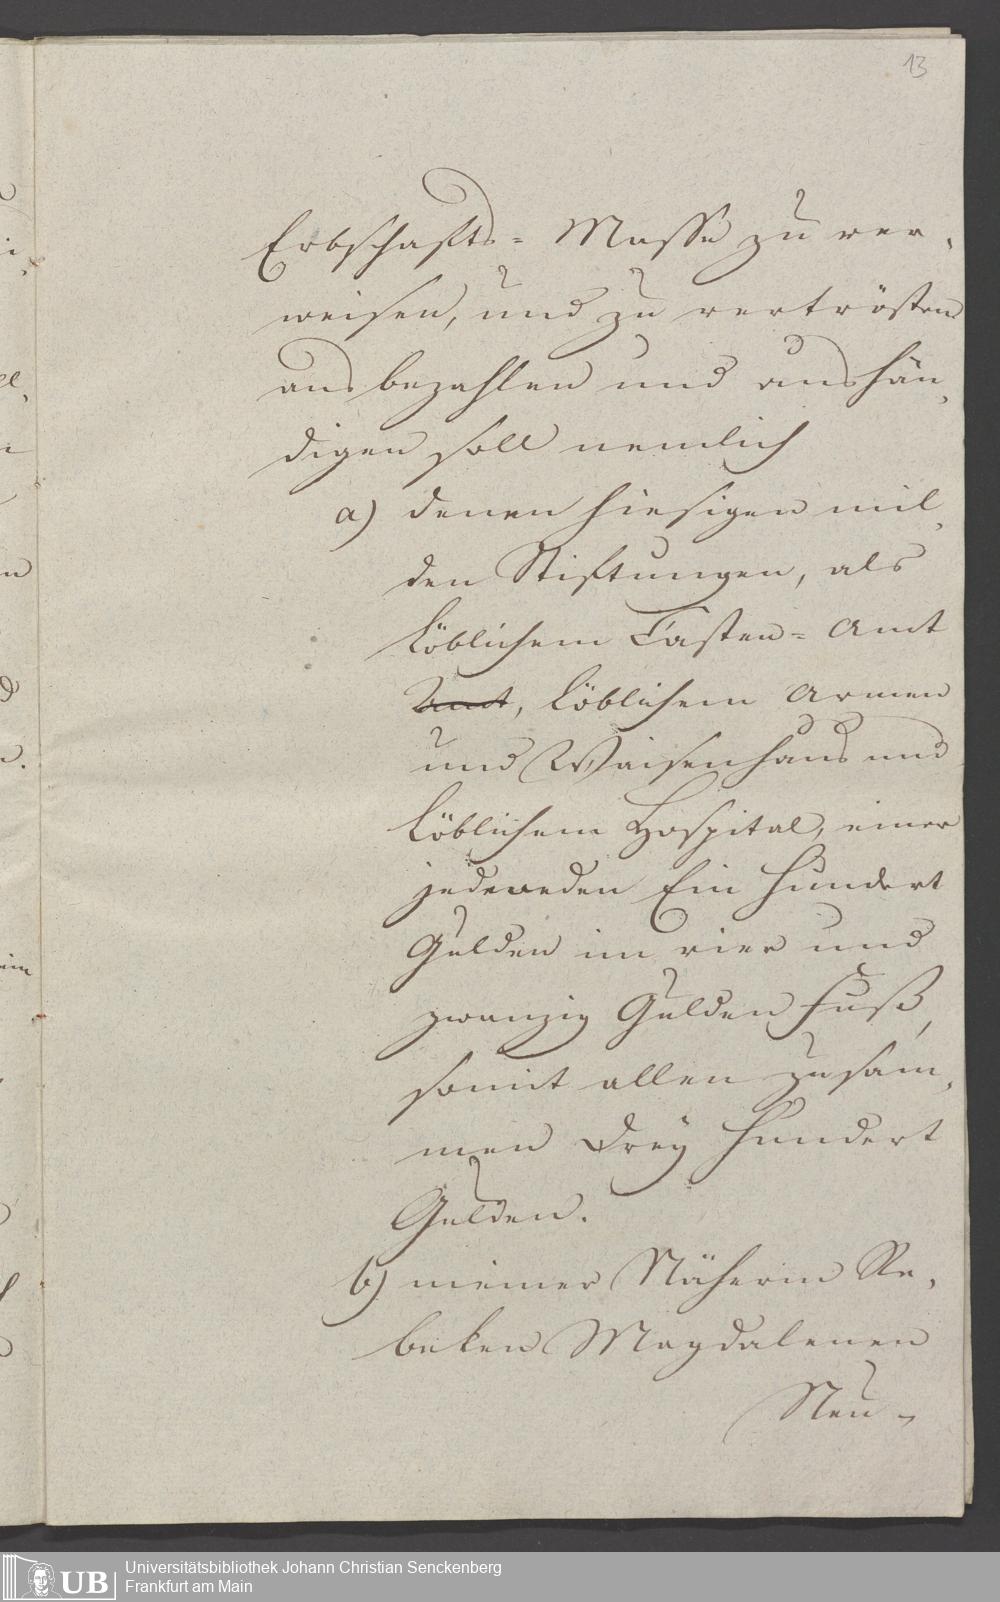 13
Erbschafts- Masse zu ver-
weisen, und zu vertrösten
ausbezahlen und aushän-
digen soll nemlich
a) denen hiesigen mil-
den Stiftungen, als
Löblichem Casten- Amt
Amt, Löblichem Armen
und Waisenhaus und
Löblichem Hospital, einer
jedweden Ein Hundert
Gulden im vier und
zwanzig Gulden Fuß,
somit allen zusam-
men Drey Hundert
Gulden.
b) meiner Näherin Re-
beken Magdalenen
Neu-
UB
Universitätsbibliothek Johann Christian Senckenberg
Frankfurt am Main